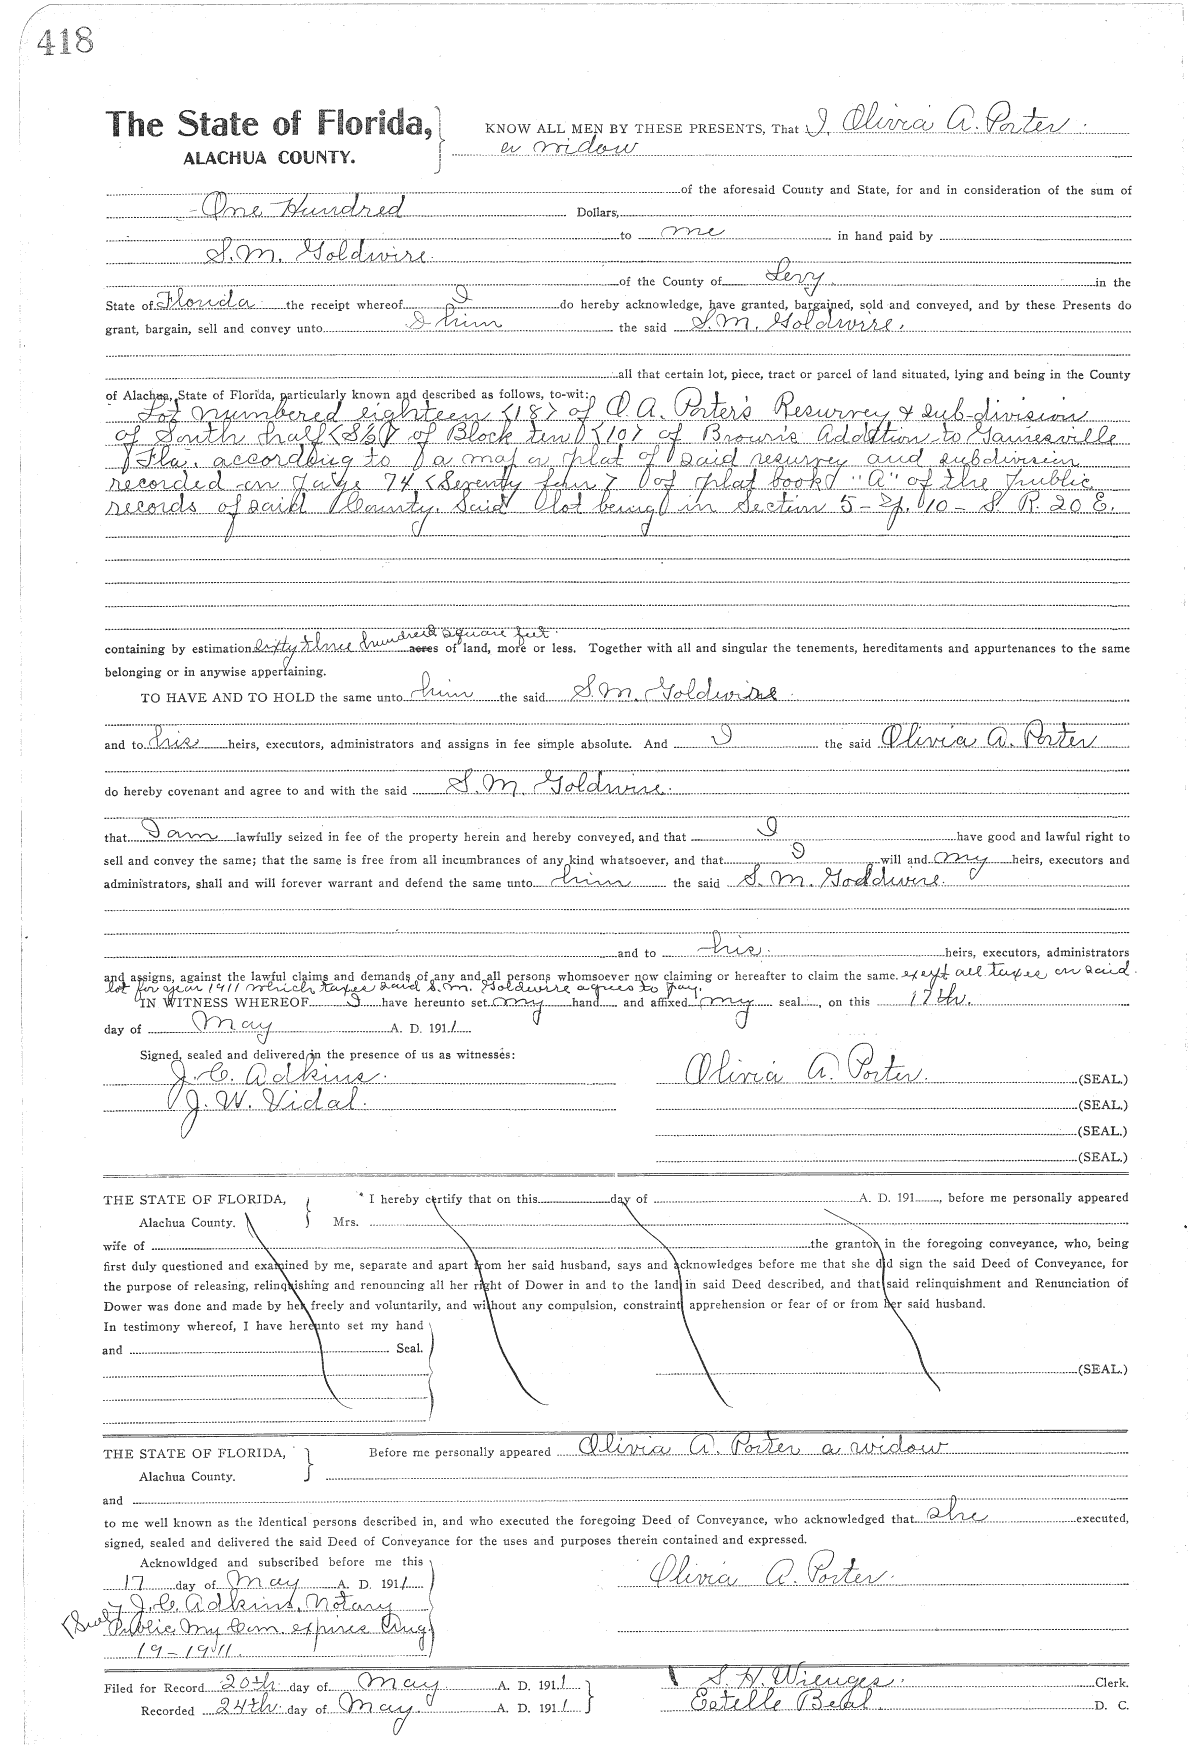 418
The State of Florida, KNOW ALL MEN BY THESE PRESENTS, That I, Olivia A. Porter
ALACHUA COUNTY. a widow
of the aforesaid County and State, for and in consideration of the sum of
One Hundred Dollars,
to me in hand paid by
S.M. Goldwire.
of the County of Levy in the
State of Florida the receipt whereof I do hereby acknowledge, have granted, bargained, sold and conveyed, and by these Presents do
grant, bargain, sell and convey unto I him the said S.M. Goldwire.
all that certain lot, piece, tract or parcel of land situated, lying and being in the County
of Alachua, State of Florida, particularly known and described as follows, to-wit:
Lot numbered eighteen (18) of O. A. Porter's Resurvey & sub-division
of South half (S½) of Block ten (10) of Brown's Addition to Gainesville
Fla. according to a map or plat of said resurvey and subdivision
recorded on page 74 (Seventy four) of plat book "A" of the public
records of said County. Said lot being in Section 5 - Tp. 10 - S R. 20 E.
containing by estimation sixty three hundred square feet acres of land, more or less. Together with all and singular the tenements, hereditaments and appurtenances to the same
belonging or in anywise appertaining.
TO HAVE AND TO HOLD the same unto him the said S.M. Goldwire
and to his heirs, executors, administrators and assigns in fee simple absolute. And I the said Olivia A. Porter
do hereby covenant and agree to and with the said S.M. Goldwire.
that I am lawfully seized in fee of the property herein and hereby conveyed, and that I have good and lawful right to
sell and convey the same; that the same is free from all incumbrances of any kind whatsoever, and that I will and my heirs, executors and
administrators, shall and will forever warrant and defend the same unto him the said S. M. Goldwire.
and to his heirs, executors, administrators
and assigns, against the lawful claims and demands of any and all persons whomsoever now claiming or hereafter to claim the same. exept all taxes on said
lot for year 1911 which taxes said S.M. Goldwire agrees to pay.
IN WITNESS WHEREOF I have hereunto set my hand and affixed my seal, on this 17th.
day of May A. D. 1911.
Signed, sealed and delivered in the presence of us as witnesses:
J. C. Adkins. Olivia A. Porter. (SEAL.)
J. W. Vidal. (SEAL.)
(SEAL.)
(SEAL.)
THE STATE OF FLORIDA, I hereby certify that on this day of A. D. 191 , before me personally appeared
Alachua County. Mrs.
wife of the grantor in the foregoing conveyance, who, being
first duly questioned and examined by me, separate and apart from her said husband, says and acknowledges before me that she did sign the said Deed of Conveyance, for
the purpose of releasing, relinquishing and renouncing all her right of Dower in and to the land in said Deed described, and that said relinquishment and Renunciation of
Dower was done and made by her freely and voluntarily, and without any compulsion, constraint apprehension or fear of or from her said husband.
In testimony whereof, I have hereunto set my hand
and Seal.
(SEAL.)
THE STATE OF FLORIDA, Before me personally appeared Olivia A. Porter a widow
Alachua County.
and
to me well known as the identical persons described in, and who executed the foregoing Deed of Conveyance, who acknowledged that she executed,
signed, sealed and delivered the said Deed of Conveyance for the uses and purposes therein contained and expressed.
Acknowldged and subscribed before me this
17 day of May A. D. 1911. Olivia A. Porter.
(Seal) J. C. Adkins, Notary
Public My Com. expires Aug
19-1911.
Filed for Record 20th day of May A. D. 1911 S. H. Wienges. Clerk.
Recorded 24th day of May A. D. 1911 Estelle Beal D. C.